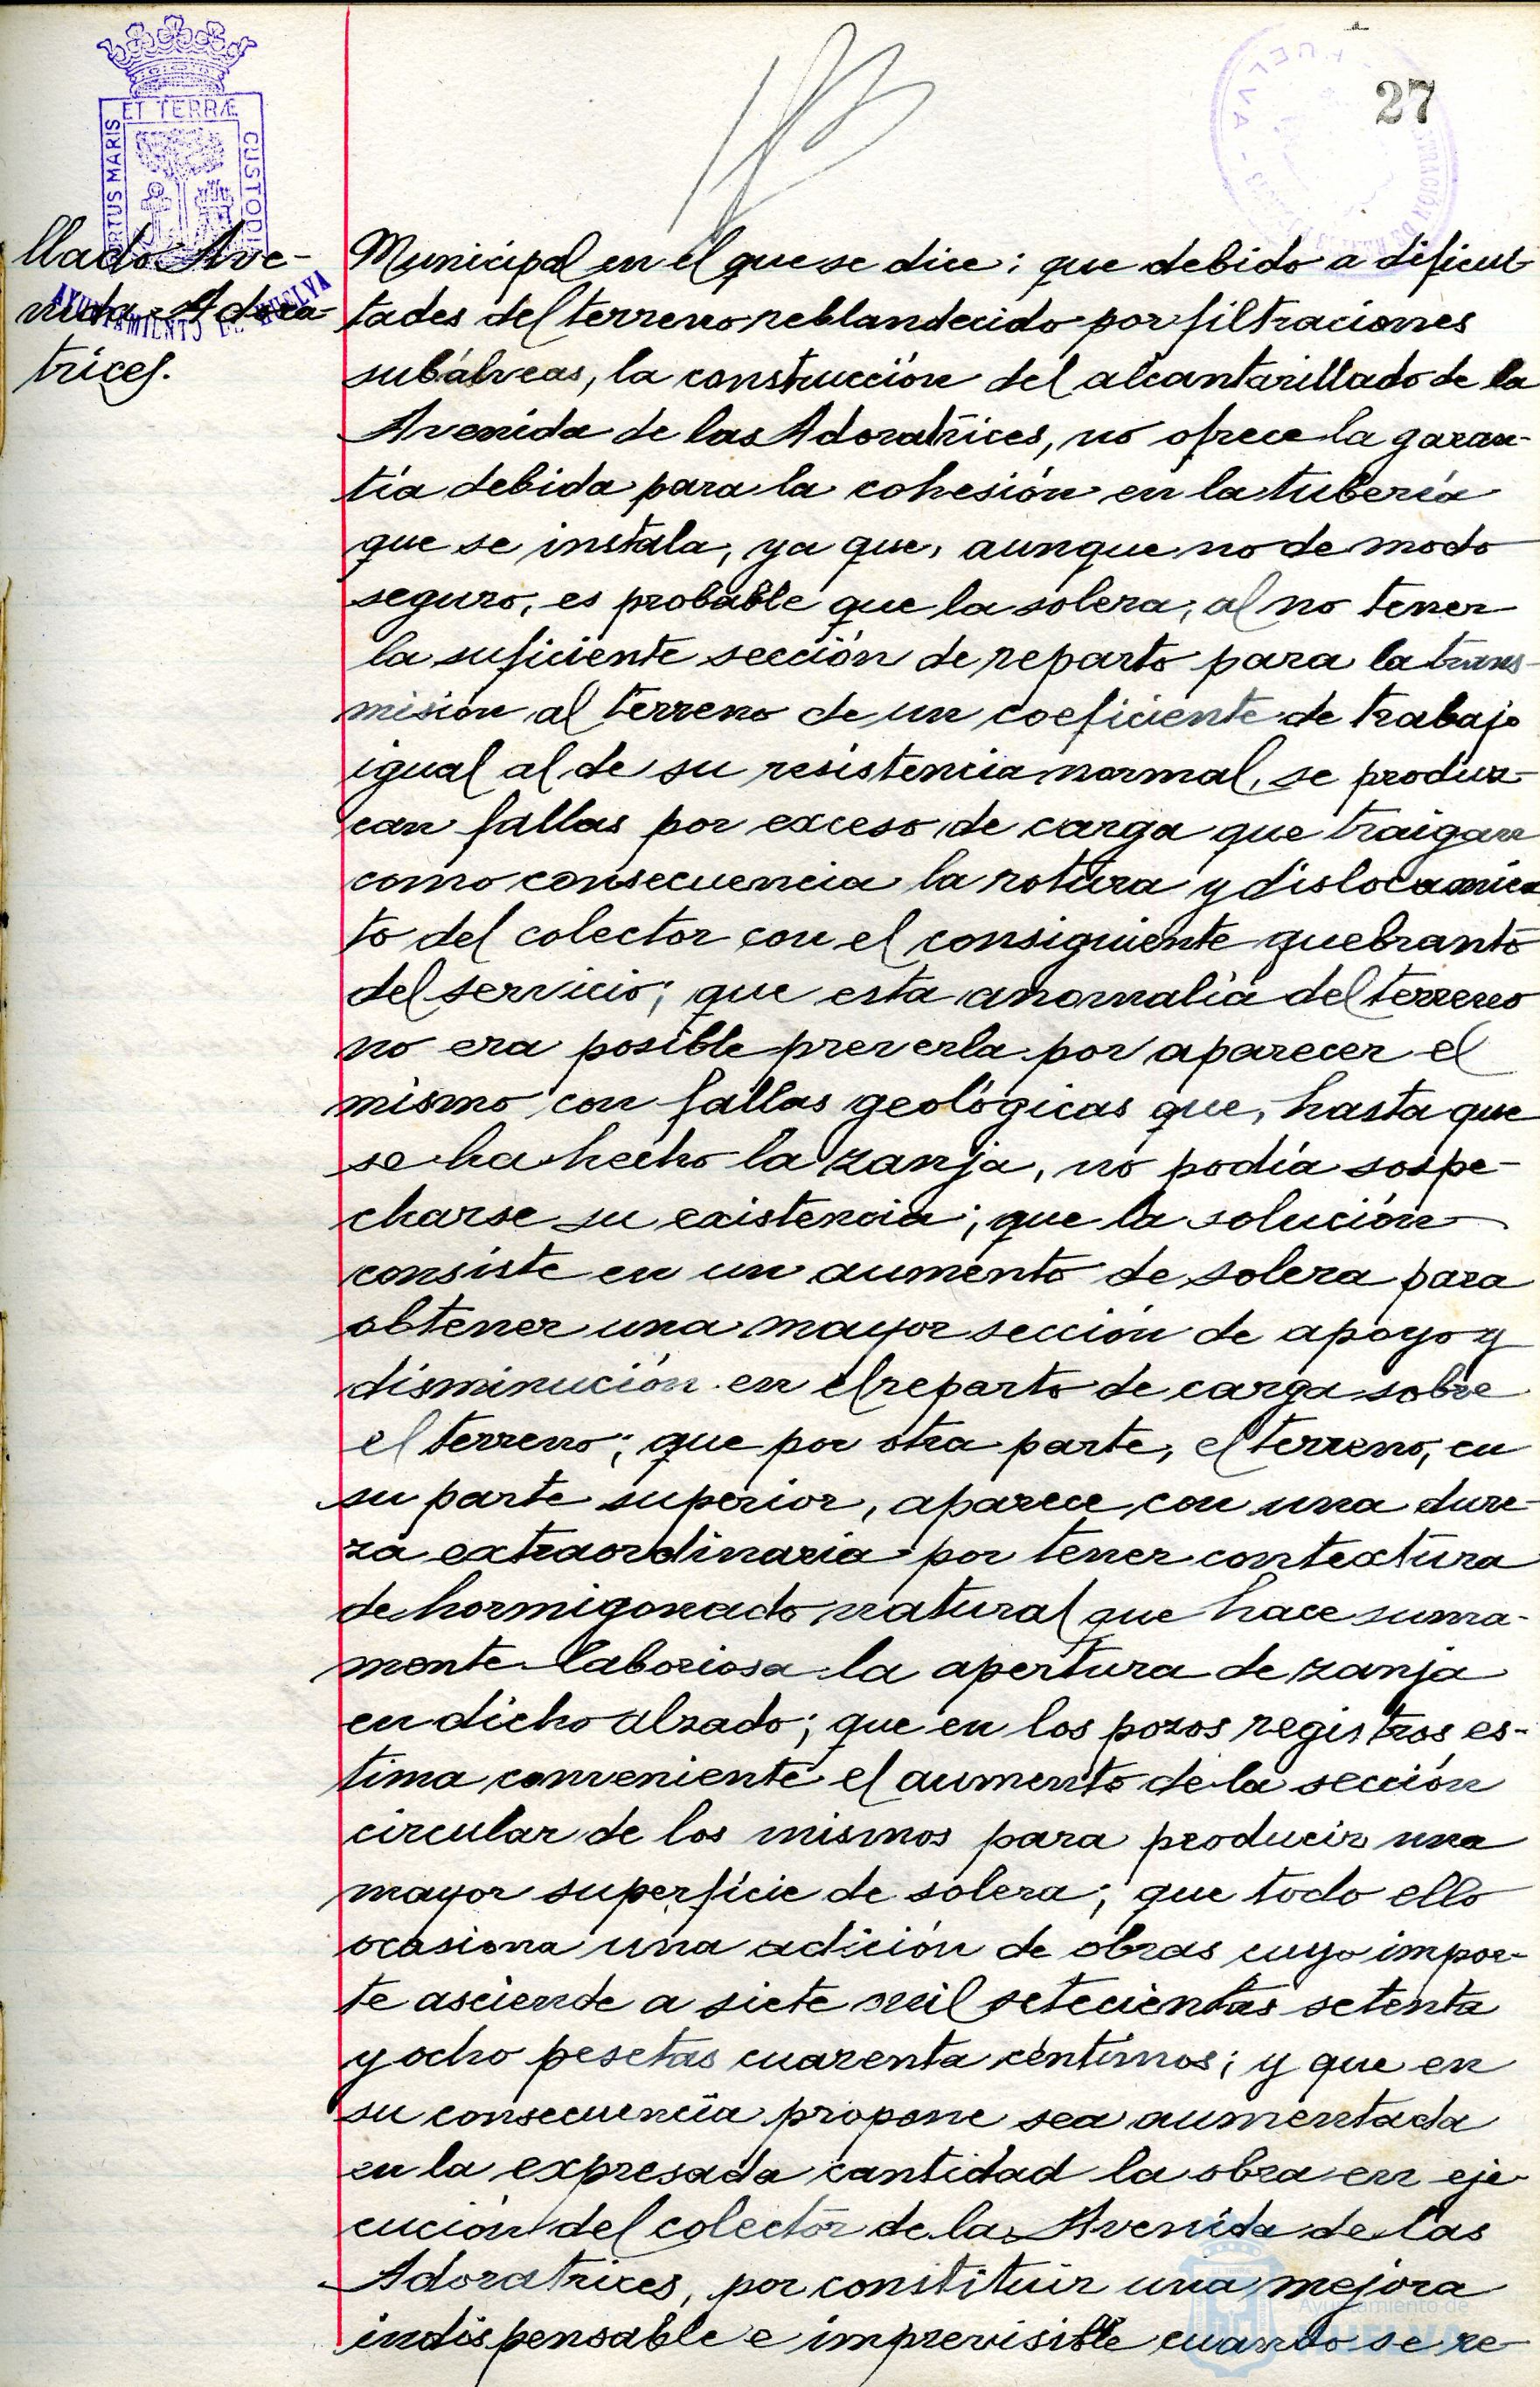 27
ET TERRÆ
PORTUS MARIS
CUSTODI
AYUNTAMIENTO DE HUELVA
HUELVA
llado Ave-
nida Adora-
trices.
Municipal en el que se dice: que debido a dificul-
tades del terreno reblandecido por filtraciones
subálveas, la construcción del alcantarillado de la
Avenida de las Adoratrices, no ofrece la garan-
tía debida para la cohesión en la tubería
que se instala, ya que, aunque no de modo
seguro, es probable que la solera, al no tener
la suficiente sección de reparto para la trans-
misión al terreno de un coeficiente de trabajo
igual al de su resistencia normal, se produz-
can fallas por exceso de carga que traigan
como consecuencia la rotura y dislocamien-
to del colector con el consiguiente quebranto
del servicio; que esta anomalía del terreno
no era posible preverla por aparecer el
mismo con fallas geológicas que, hasta que
se ha hecho la zanja, no podía sospe-
charse su existencia; que la solución
consiste en un aumento de solera para
obtener una mayor sección de apoyo y
disminución en el reparto de carga sobre
el terreno; que por otra parte, el terreno, en
su parte superior, aparece con una dure-
za extraordinaria por tener contextura
de hormigonado natural que hace suma-
mente laboriosa la apertura de zanja
en dicho alzado; que en los pozos registros es-
tima conveniente el aumento de la sección
circular de los mismos para producir una
mayor superficie de solera; que todo ello
ocasiona una adición de obras cuyo impor-
te asciende a siete mil setecientas setenta
y ocho pesetas cuarenta céntimos; y que en
su consecuencia propone sea aumentada
en la expresada cantidad la obra en eje-
cución del colector de la Avenida de las
Adoratrices, por constituir una mejora
indispensable e imprevisible cuando se re-
Ayuntamiento de
HUELVA